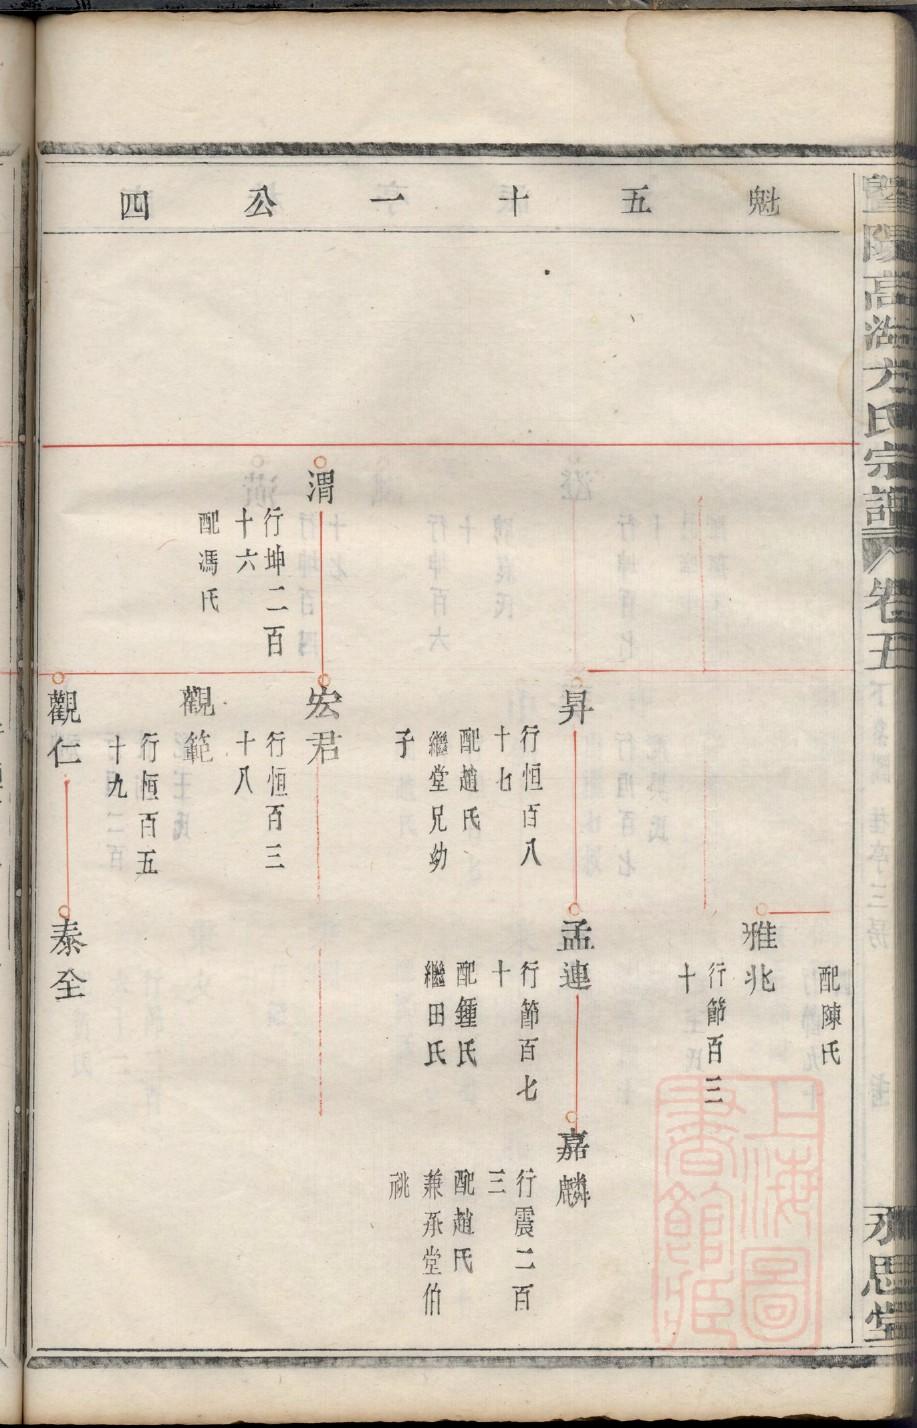 暨陽高湖方氏宗譜 卷五
永思堂
魁五十一公四
配陳氏
雅兆
行節百三
十
昇
行恒百八
十七
配趙氏
繼堂兄幼
子
孟連
行節百七
十
配鍾氏
繼田氏
嘉麟
行震二百
三
配趙氏
兼承堂伯
祧
渭
行坤二百
十六
配馮氏
宏君
行恒百三
十八
觀範
行恒百五
十九
觀仁
泰全
上海圖
書館藏